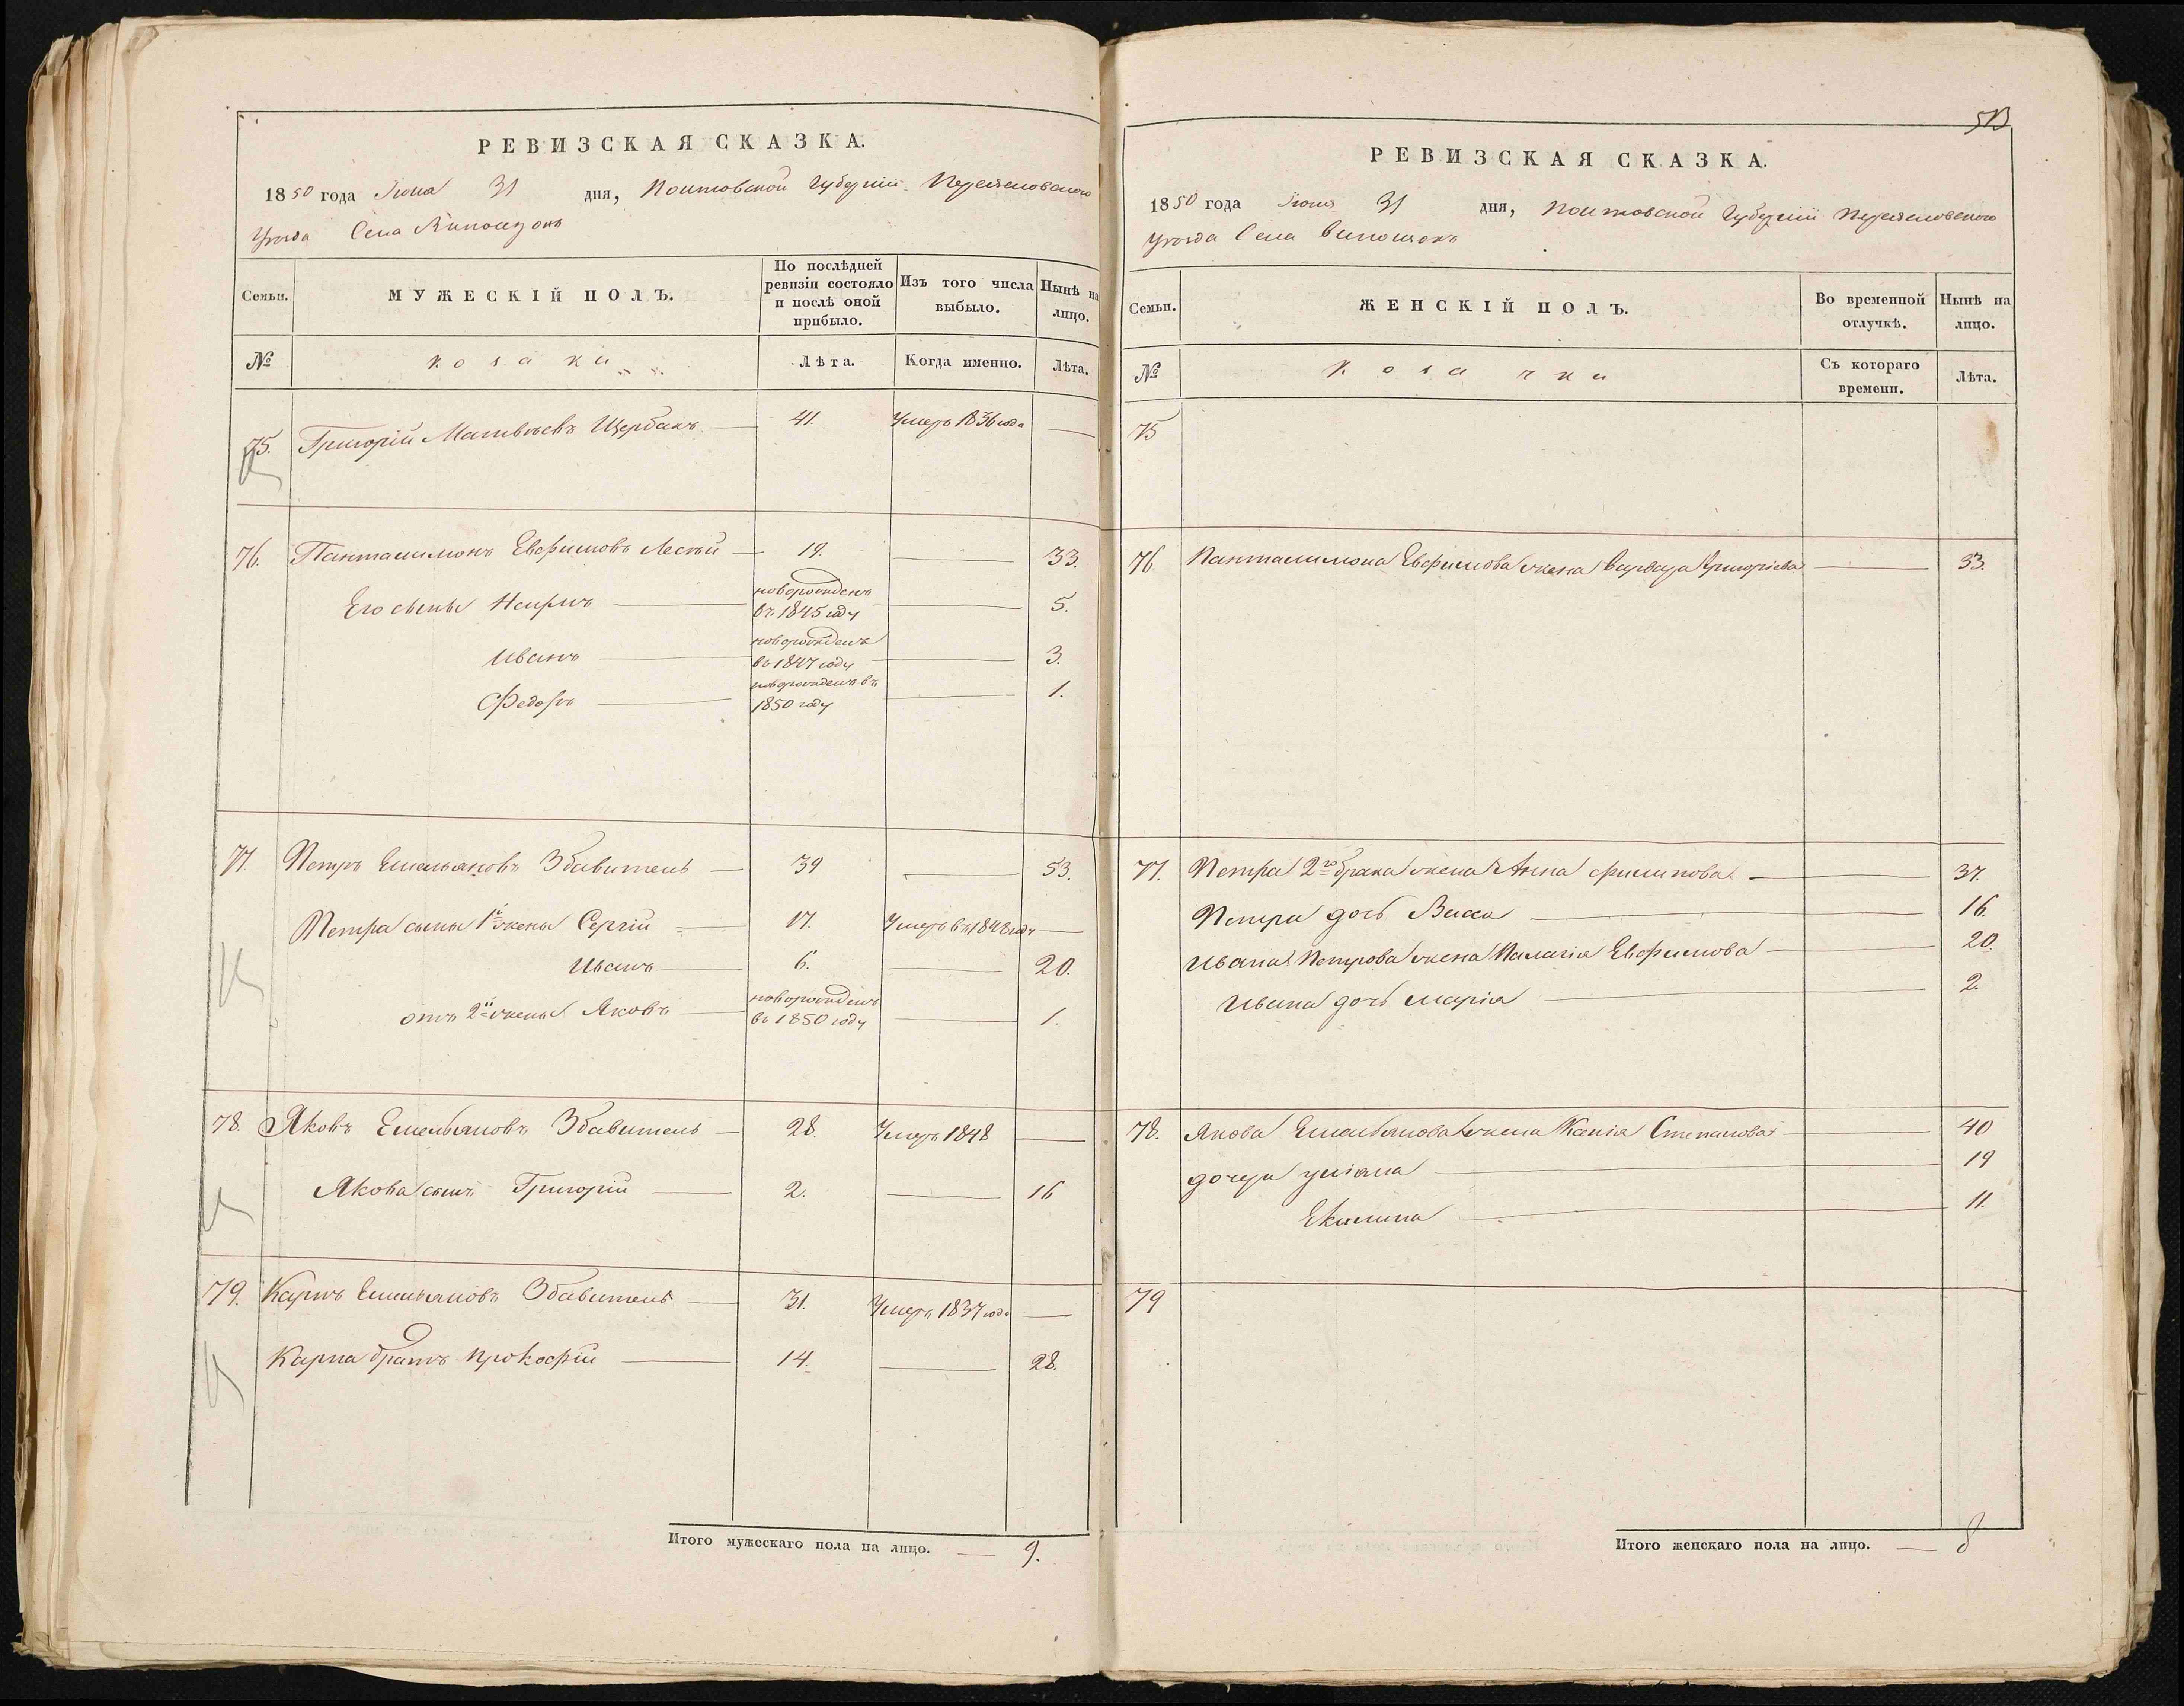 РЕВИЗСКАЯ СКАЗКА.
1850 года Іюля 31 дня, Полтавской Губерніи Переяславского
Уезда Села
Семьи. МУЖЕСКІЙ ПОЛЪ. По послѣдней ревизіи состояло и послѣ оной прибыло. Изъ того числа выбыло. Нынѣ на лицо.
№ козаки Лѣта. Когда именно. Лѣта.
75. Григорій Матвѣевъ Щербакъ 41. Умеръ 1836 года
76. Панталимонъ Евфимовъ 19. 33.
Его сыны новорожденъ въ 1845 году 5.
Иванъ новорожденъ въ 1847 году 3.
Федоръ новорожденъ въ 1850 году 1.
77. Петръ Емельяновъ Збавитель 39 53.
Петра сыны 1й жены Сергій 17. Умеръ въ 1848 году
Иванъ 6. 20.
отъ 2й жены Яковъ новорожденъ въ 1850 году 1.
78. Яковъ Емельяновъ Збавитель 28. Умеръ 1848
Якова сынъ Григорій 2. 16
79. Карпъ Емельяновъ Збавитель 31. Умеръ 1837 года
Карпа братъ Прокофій 14. 28.
Итого мужескаго пола на лицо. 9.
513
РЕВИЗСКАЯ СКАЗКА.
1850 года Іюля 31 дня, Полтавской Губерніи Переяславского
Уезда Села
Семьи. ЖЕНСКІЙ ПОЛЪ. Во временной отлучкѣ. Нынѣ на лицо.
№ Козачки Съ котораго времени. Лѣта.
75
76. Панталимона Евфимова жена Варвара Григоріева 33.
77. Петра 2го брака жена Анна Филипова 37.
Петра дочь Васса 16.
Ивана Петрова жена Палагія Евфимова 20.
Ивана дочь Марія 2.
78. Якова Емельянова жена Ксенія Степанова 40
дочери уліана 19
Екилина 11.
79
Итого женскаго пола на лицо. 8